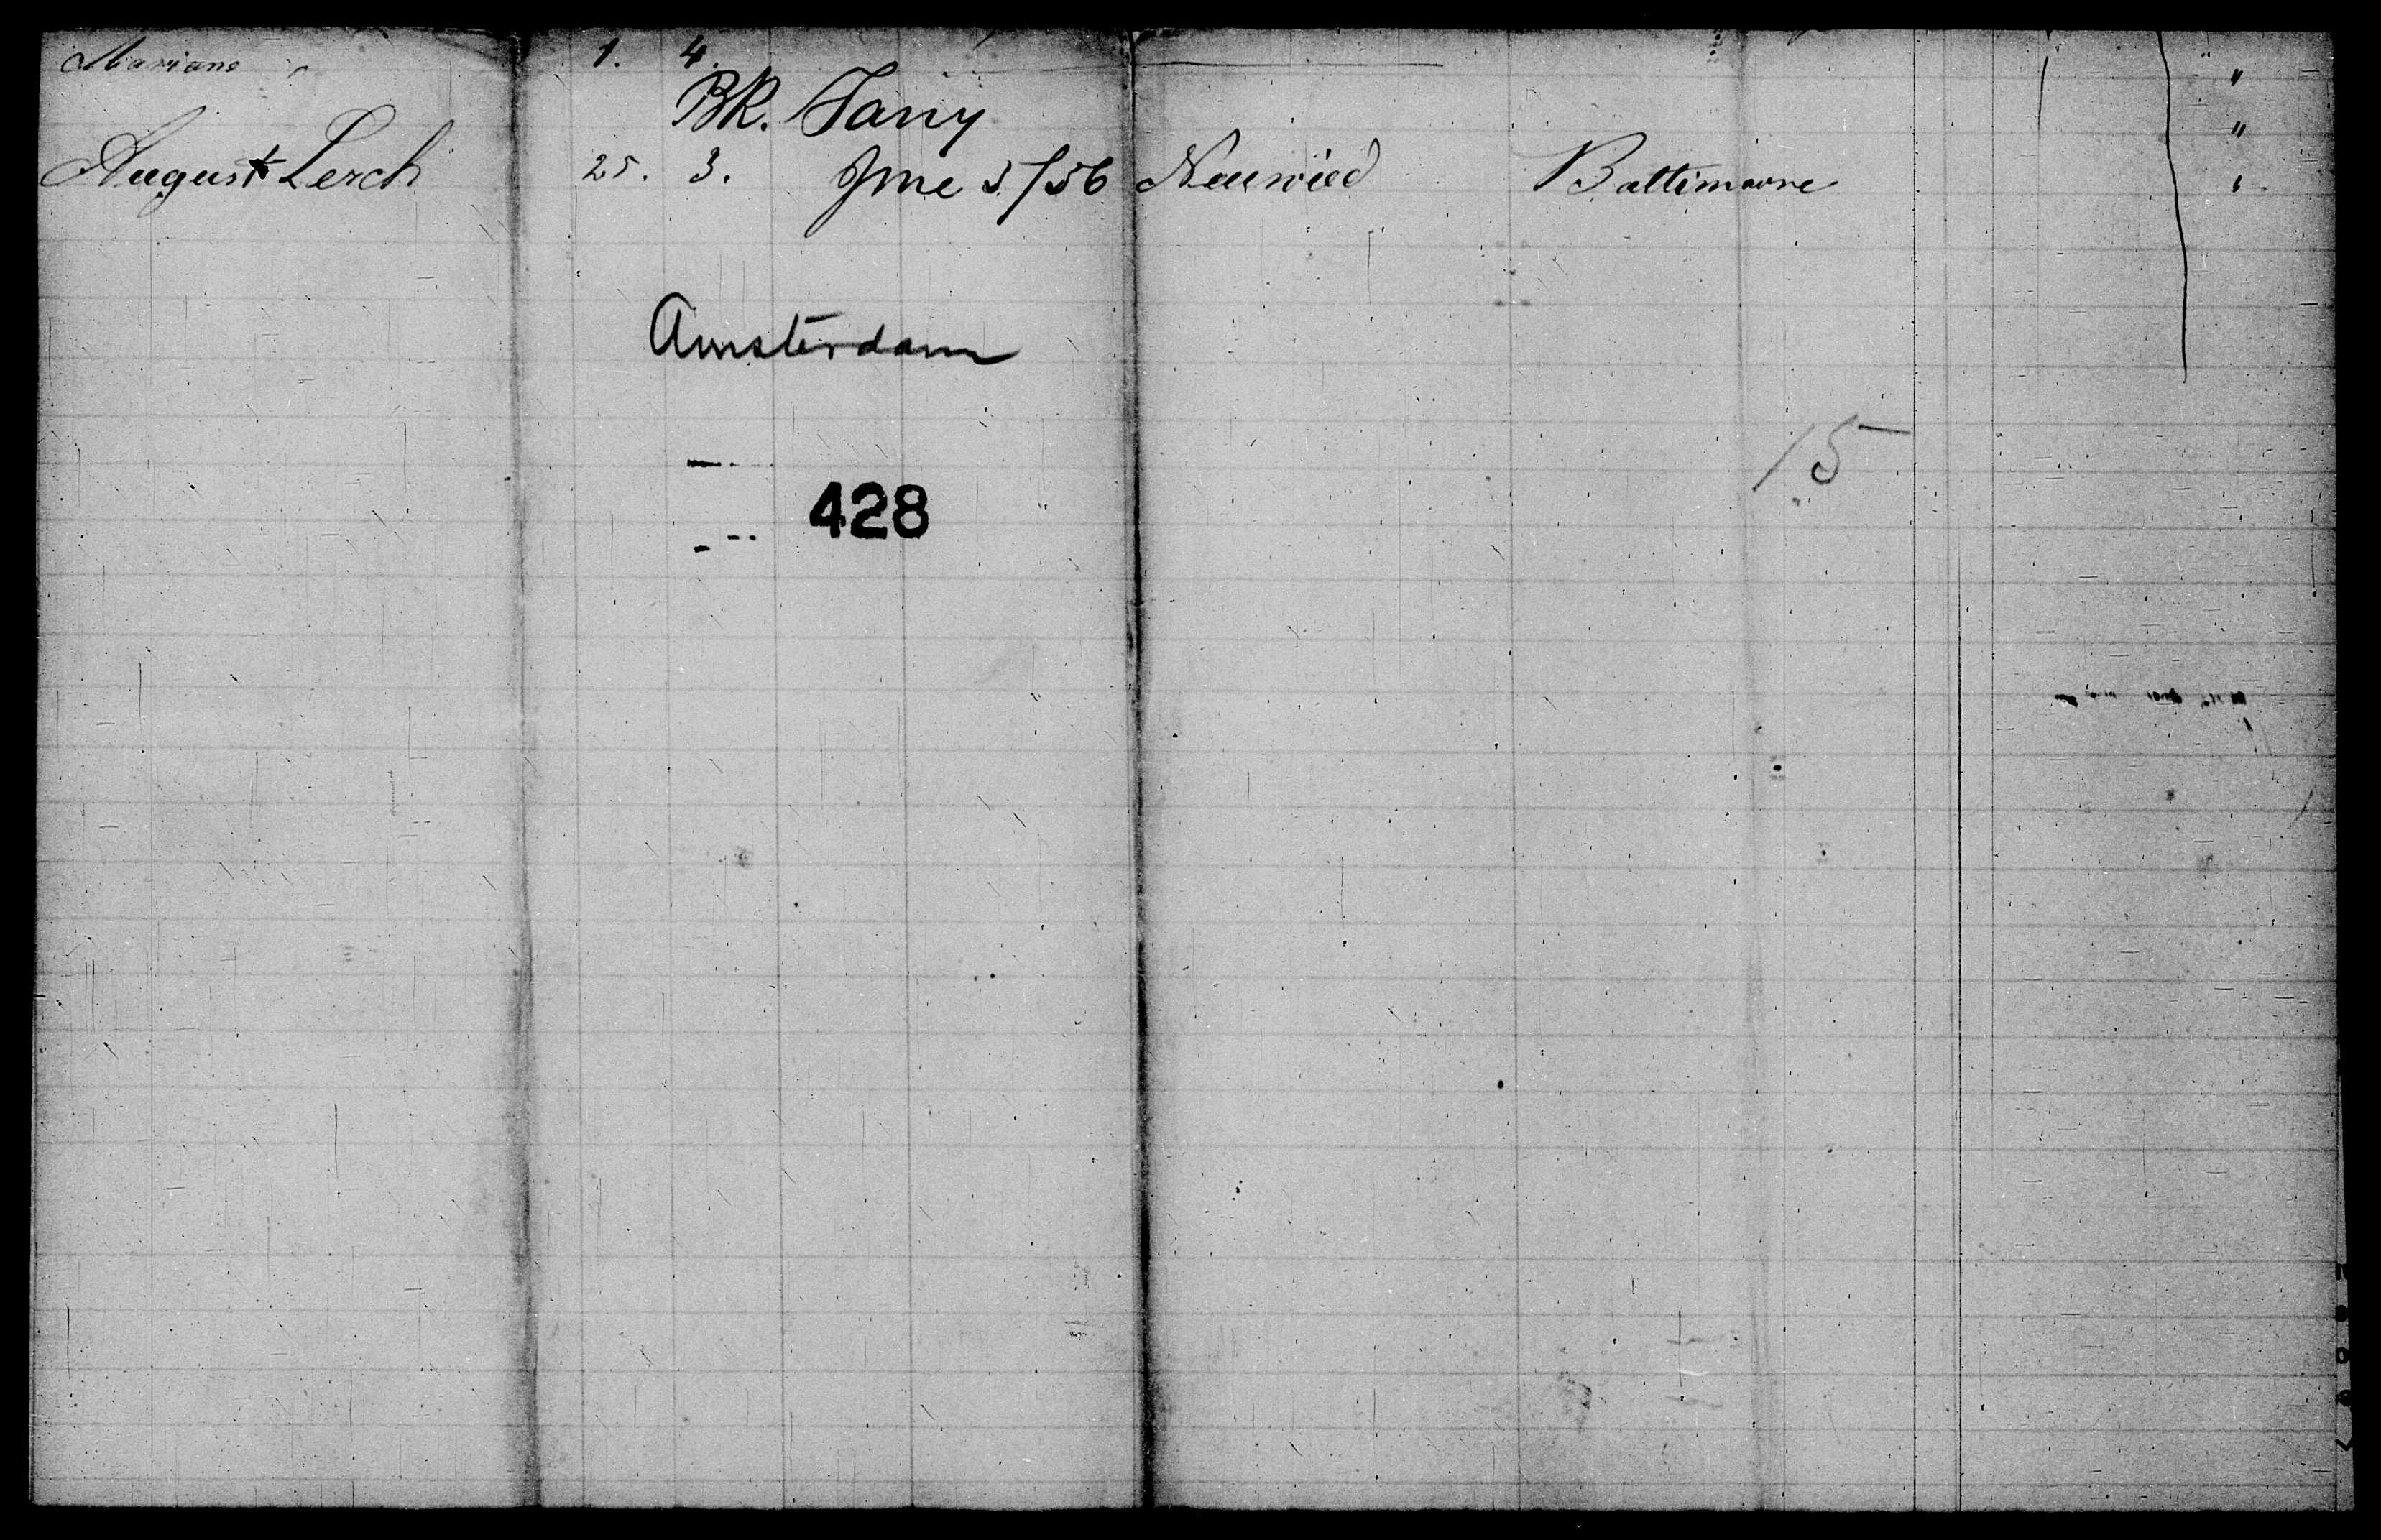 Mariane 1. 4. "
BK. Fany "
August Lerch 25. 3. June 5/56 Neuwied Baltimore "
Amsterdam
15
428